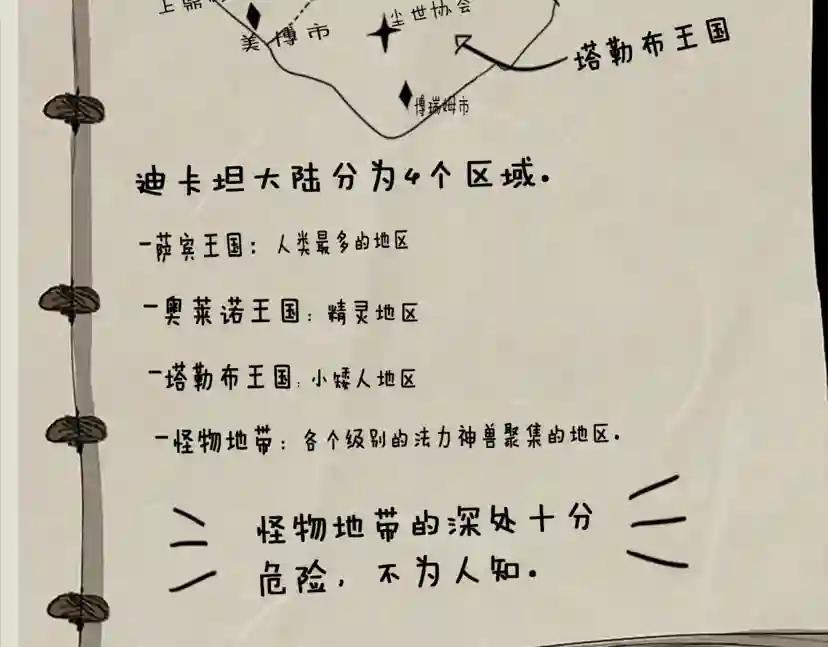 尘世协会
美博市
塔勒布王国
博瑞姆市
迪卡坦大陆分为4个区域.
-萨宾王国: 人类最多的地区
-奥莱诺王国: 精灵地区
-塔勒布王国: 小矮人地区
-怪物地带: 各个级别的法力神兽聚集的地区.
怪物地带的深处十分
危险, 不为人知.